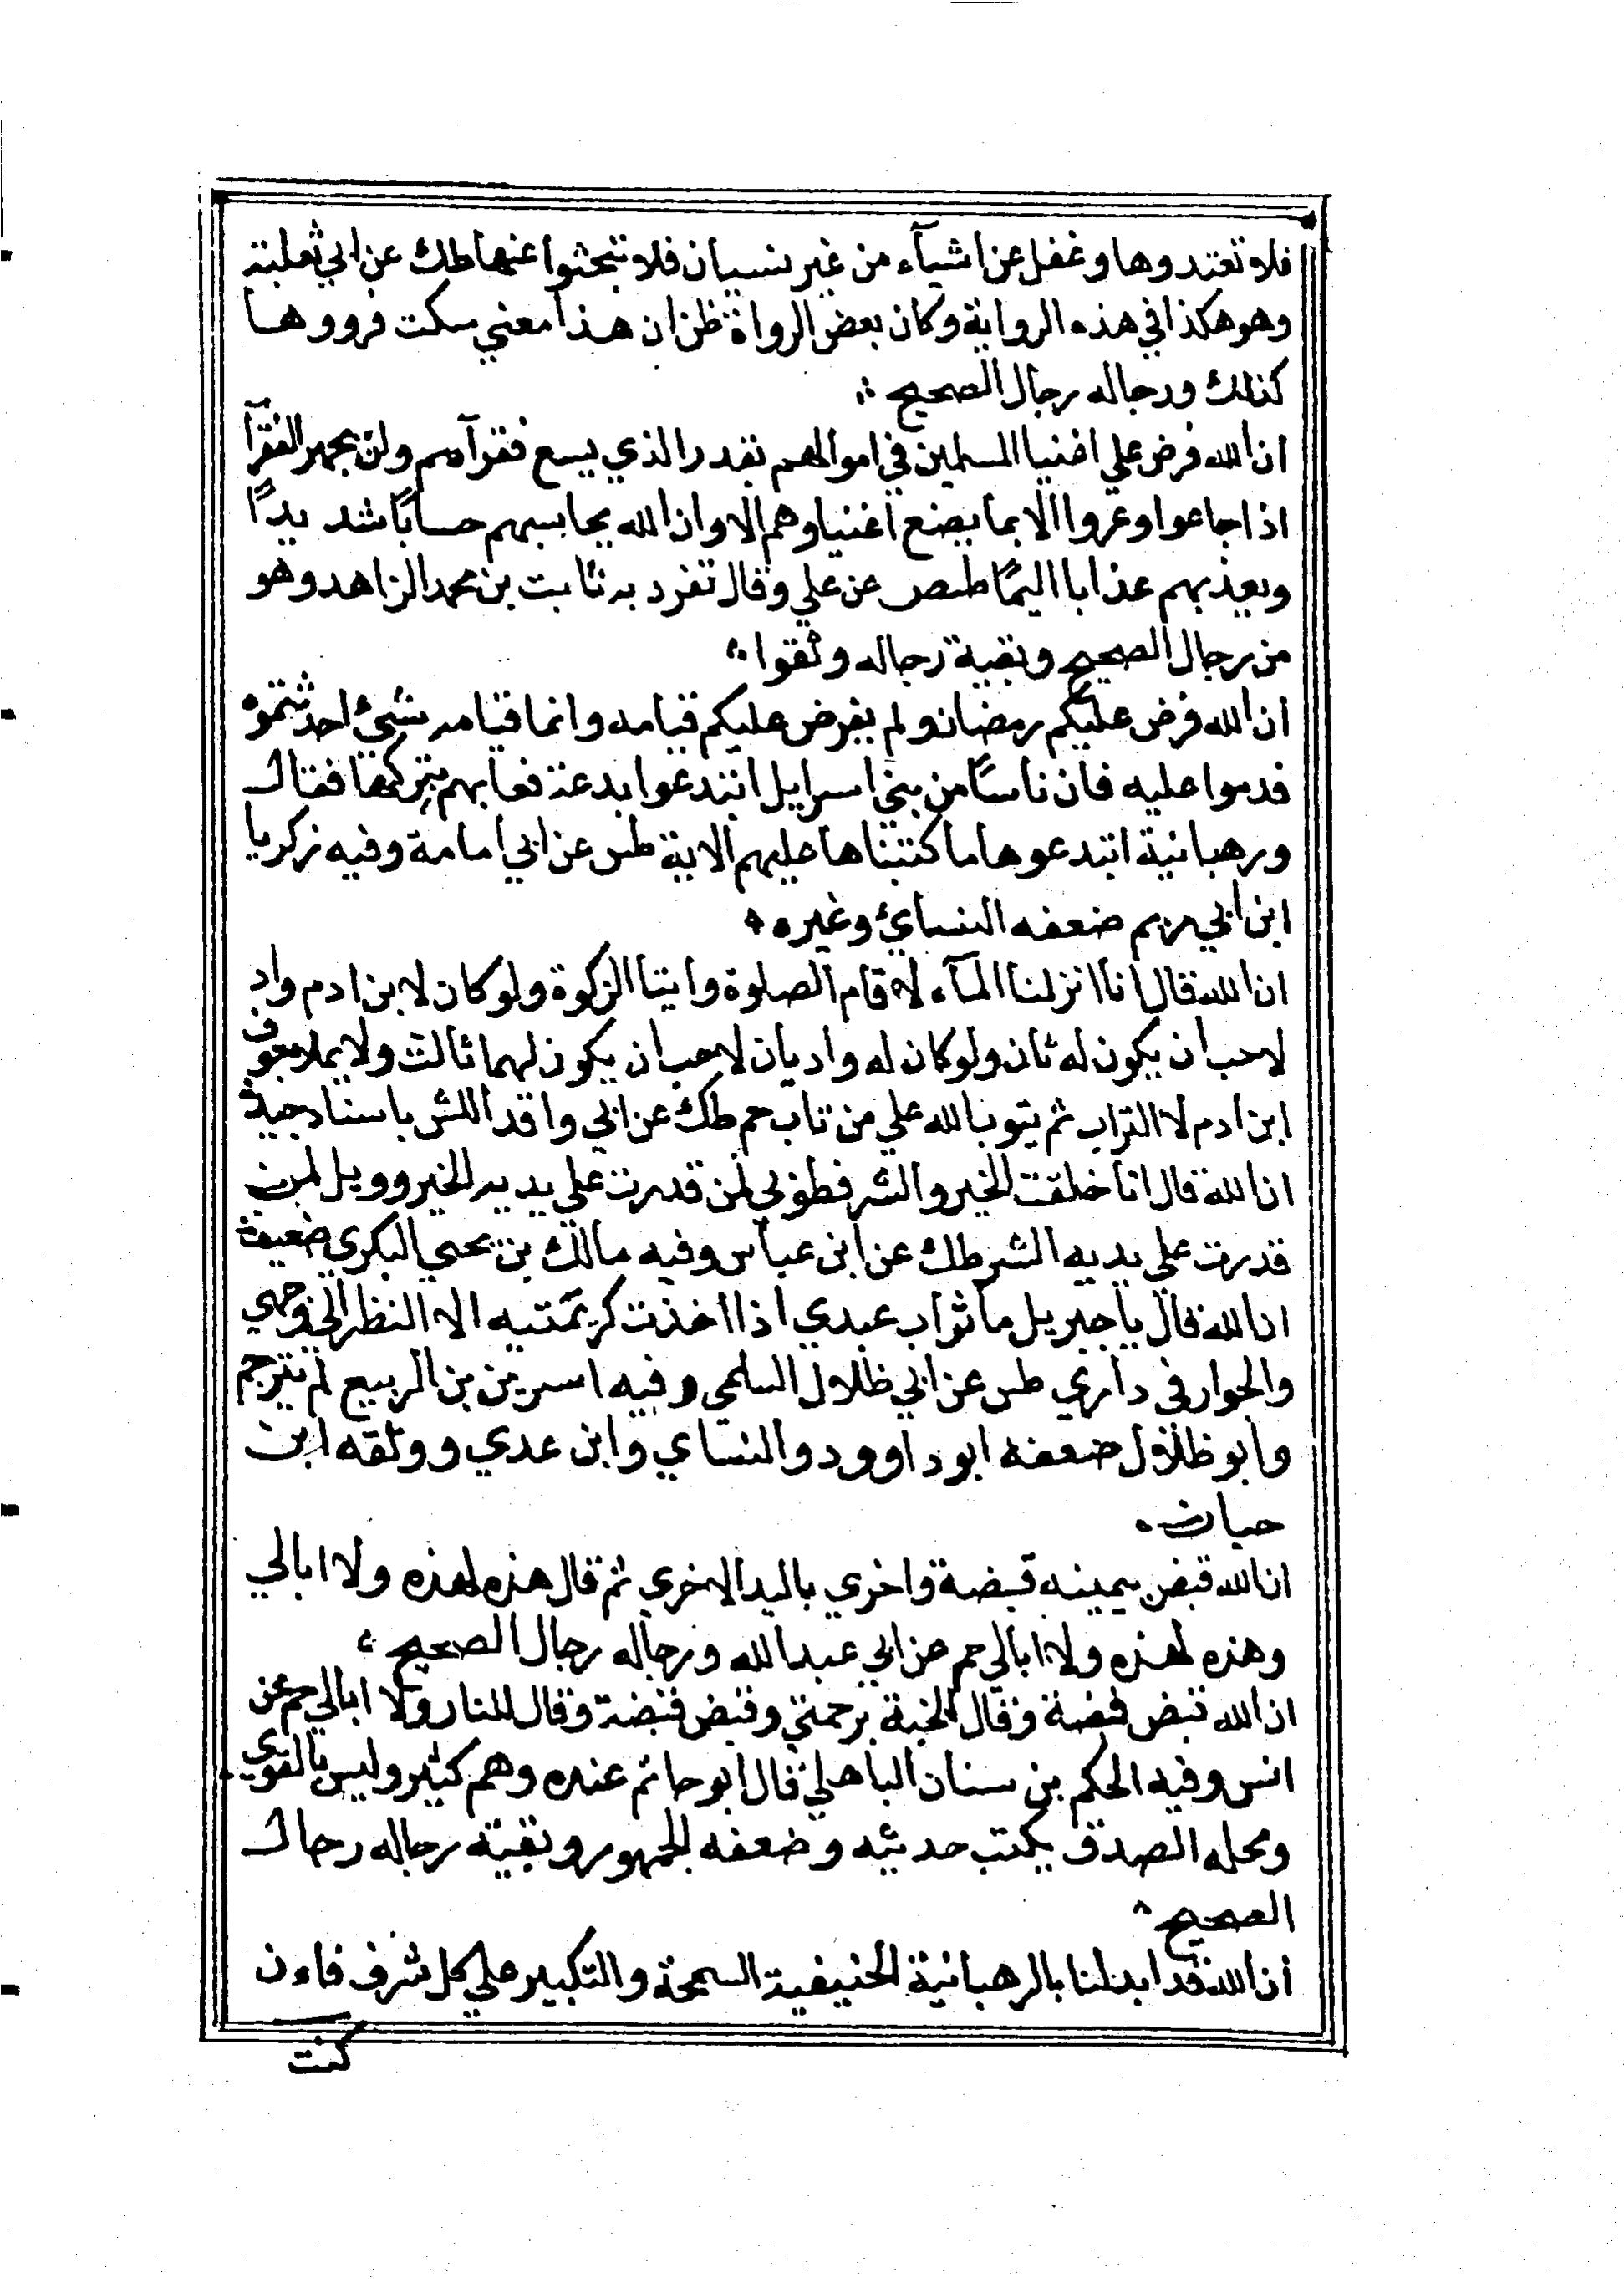 فلا تعتدوها وغفل عن اشيآء من غير نسيان فلا تبحثوا عنها طك عن ابي ثعلبة
وهو هكذا في هذه الرواية وكان بعض الرواة ظن ان هذا معني سكت فرووها
كذلك ورجاله رجال الصحيح
ان الله فرض علي اغنيا المسلمين في اموالهم بقدر الذي يسع فقرآهم ولن يجهد الفقرآ
اذا جاعوا وعروا الا بما يصنع اغنياوهم الا وان الله يحاسبهم حسابًا شديدًا
ويعذبهم عذابا اليمًا طص عن علي وقال تفرد به ثابت بن محمد الزاهد وهو
من رجال الصحيح وبقية رجاله وثقوا
ان الله فرض عليكم رمضان ولم يفرض عليكم قيامه وانما قيامه شيئ احدثتموه
فدموا عليه فان ناسًا من بني اسرايل ابتدعوا بدعة فعابهم بتركها فقال
ورهبانية ابتدعوها ما كتبناها عليهم الاية طس عن ابي امامة وفيه زكريا
ابن ابي مريم ضعفه النسائي وغيره
ان الله قال انا انزلنا المآء لاقام الصلوة وايتا الزكوة ولو كان لابن ادم واد
لاحب ان يكون له ثان ولو كان له واديان لاحب ان يكون لهما ثالث ولا يملا جوف
ابن ادم لا التراب ثم يتوب الله علي من تاب حم طك عن ابي واقد اللش باسناد جيد
ان الله قال انا خلقت الخير والشر فطوبي لمن قدرت علي يديه الخير وويل لمن
قدرت علي يديه الشر طك عن ابن عباس وفيه مالك بن يحيي البكري ضعيف
ان الله قال يا جبريل ما ثواب عبدي اذا اخذت كريمتيه الا النظر الي وجهي
والجوار في داري طس عن ابي ظلال السلمي وفيه اسرين بن الربيع لم يترجم
وابو ظلال ضعفه ابو داوود والنساي وابن عدي ووثقه ابن
حبان
ان الله قبض بيمينه قبضة واخري باليد الاخري ثم قال هذه لهذه ولا ابالي
وهذه لهذه ولا ابالي حم عن ابي عبد الله ورجاله رجال الصحيح
ان الله قبض قبضة وقال الجنة برحمتي وقبض قبضة وقال للنار ولا ابالي حم عن
انس وفيه الحكم بن سنان الباهلي قال ابو حاتم عنده وهم كثير وليس بالقوي
ومحله الصدق يكتب حديثه وضعفه الجمهور وبقية رجاله رجال
الصحيح
ان الله قد ابدلنا بالرهبانية الحنيفية السمحة والتكبير علي كل شرف فان
كنت